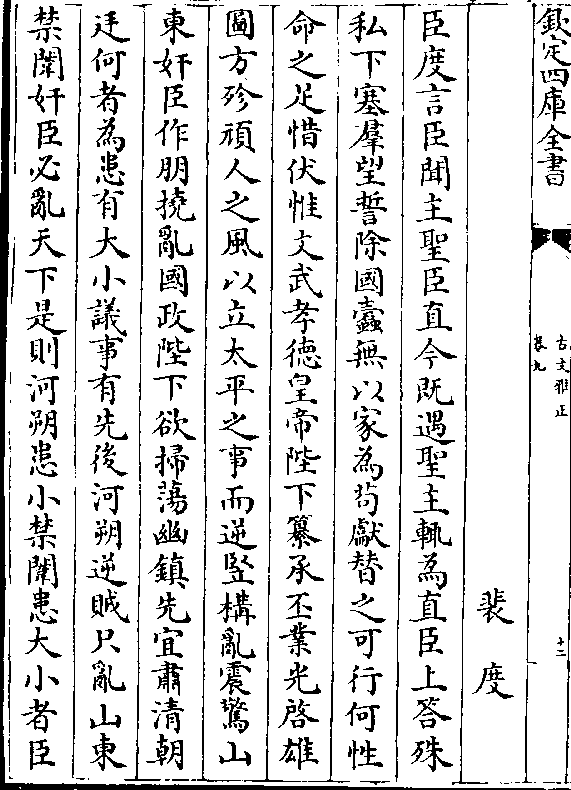 欽定四庫全書
古文雅正
卷九
十二
裴度
臣度言臣聞主聖臣直今既遇聖主輒為直臣上答殊
私下塞羣望誓除國蠧無以家為茍獻替之可行何性
命之足惜伏惟文武孝德皇帝陛下纂承丕業光啓雄
圖方殄頑人之風以立太平之事而逆竪構亂震驚山
東奸臣作朋撓亂國政陛下欲掃蕩幽鎮先宜肅清朝
廷何者為患有大小議事有先後河朔逆賊只亂山東
禁闈奸臣必亂天下是則河朔患小禁闈患大小者臣